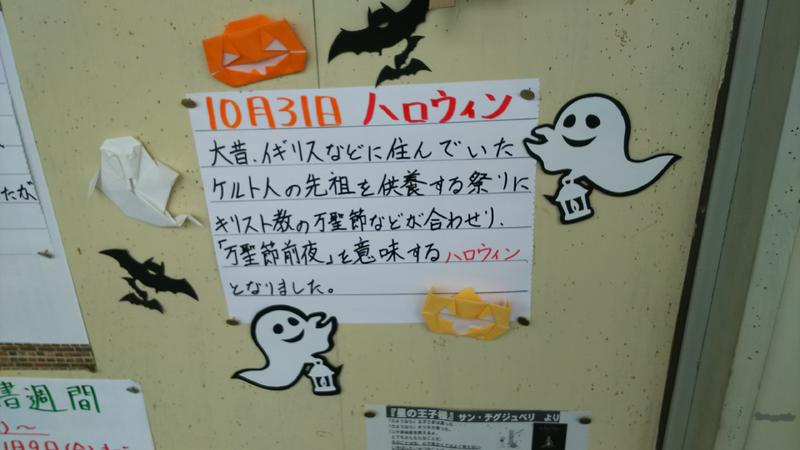 10月31日 ハロウィン
大昔、イギリスなどに住んでいた
ケルト人の先祖を供養する祭りに
キリスト教の万聖節などが合わせり、
「万聖節前夜」を意味するハロウィン
となりました。
たが
書週間
)～
『星の王子様』サン・テグジュペリ より